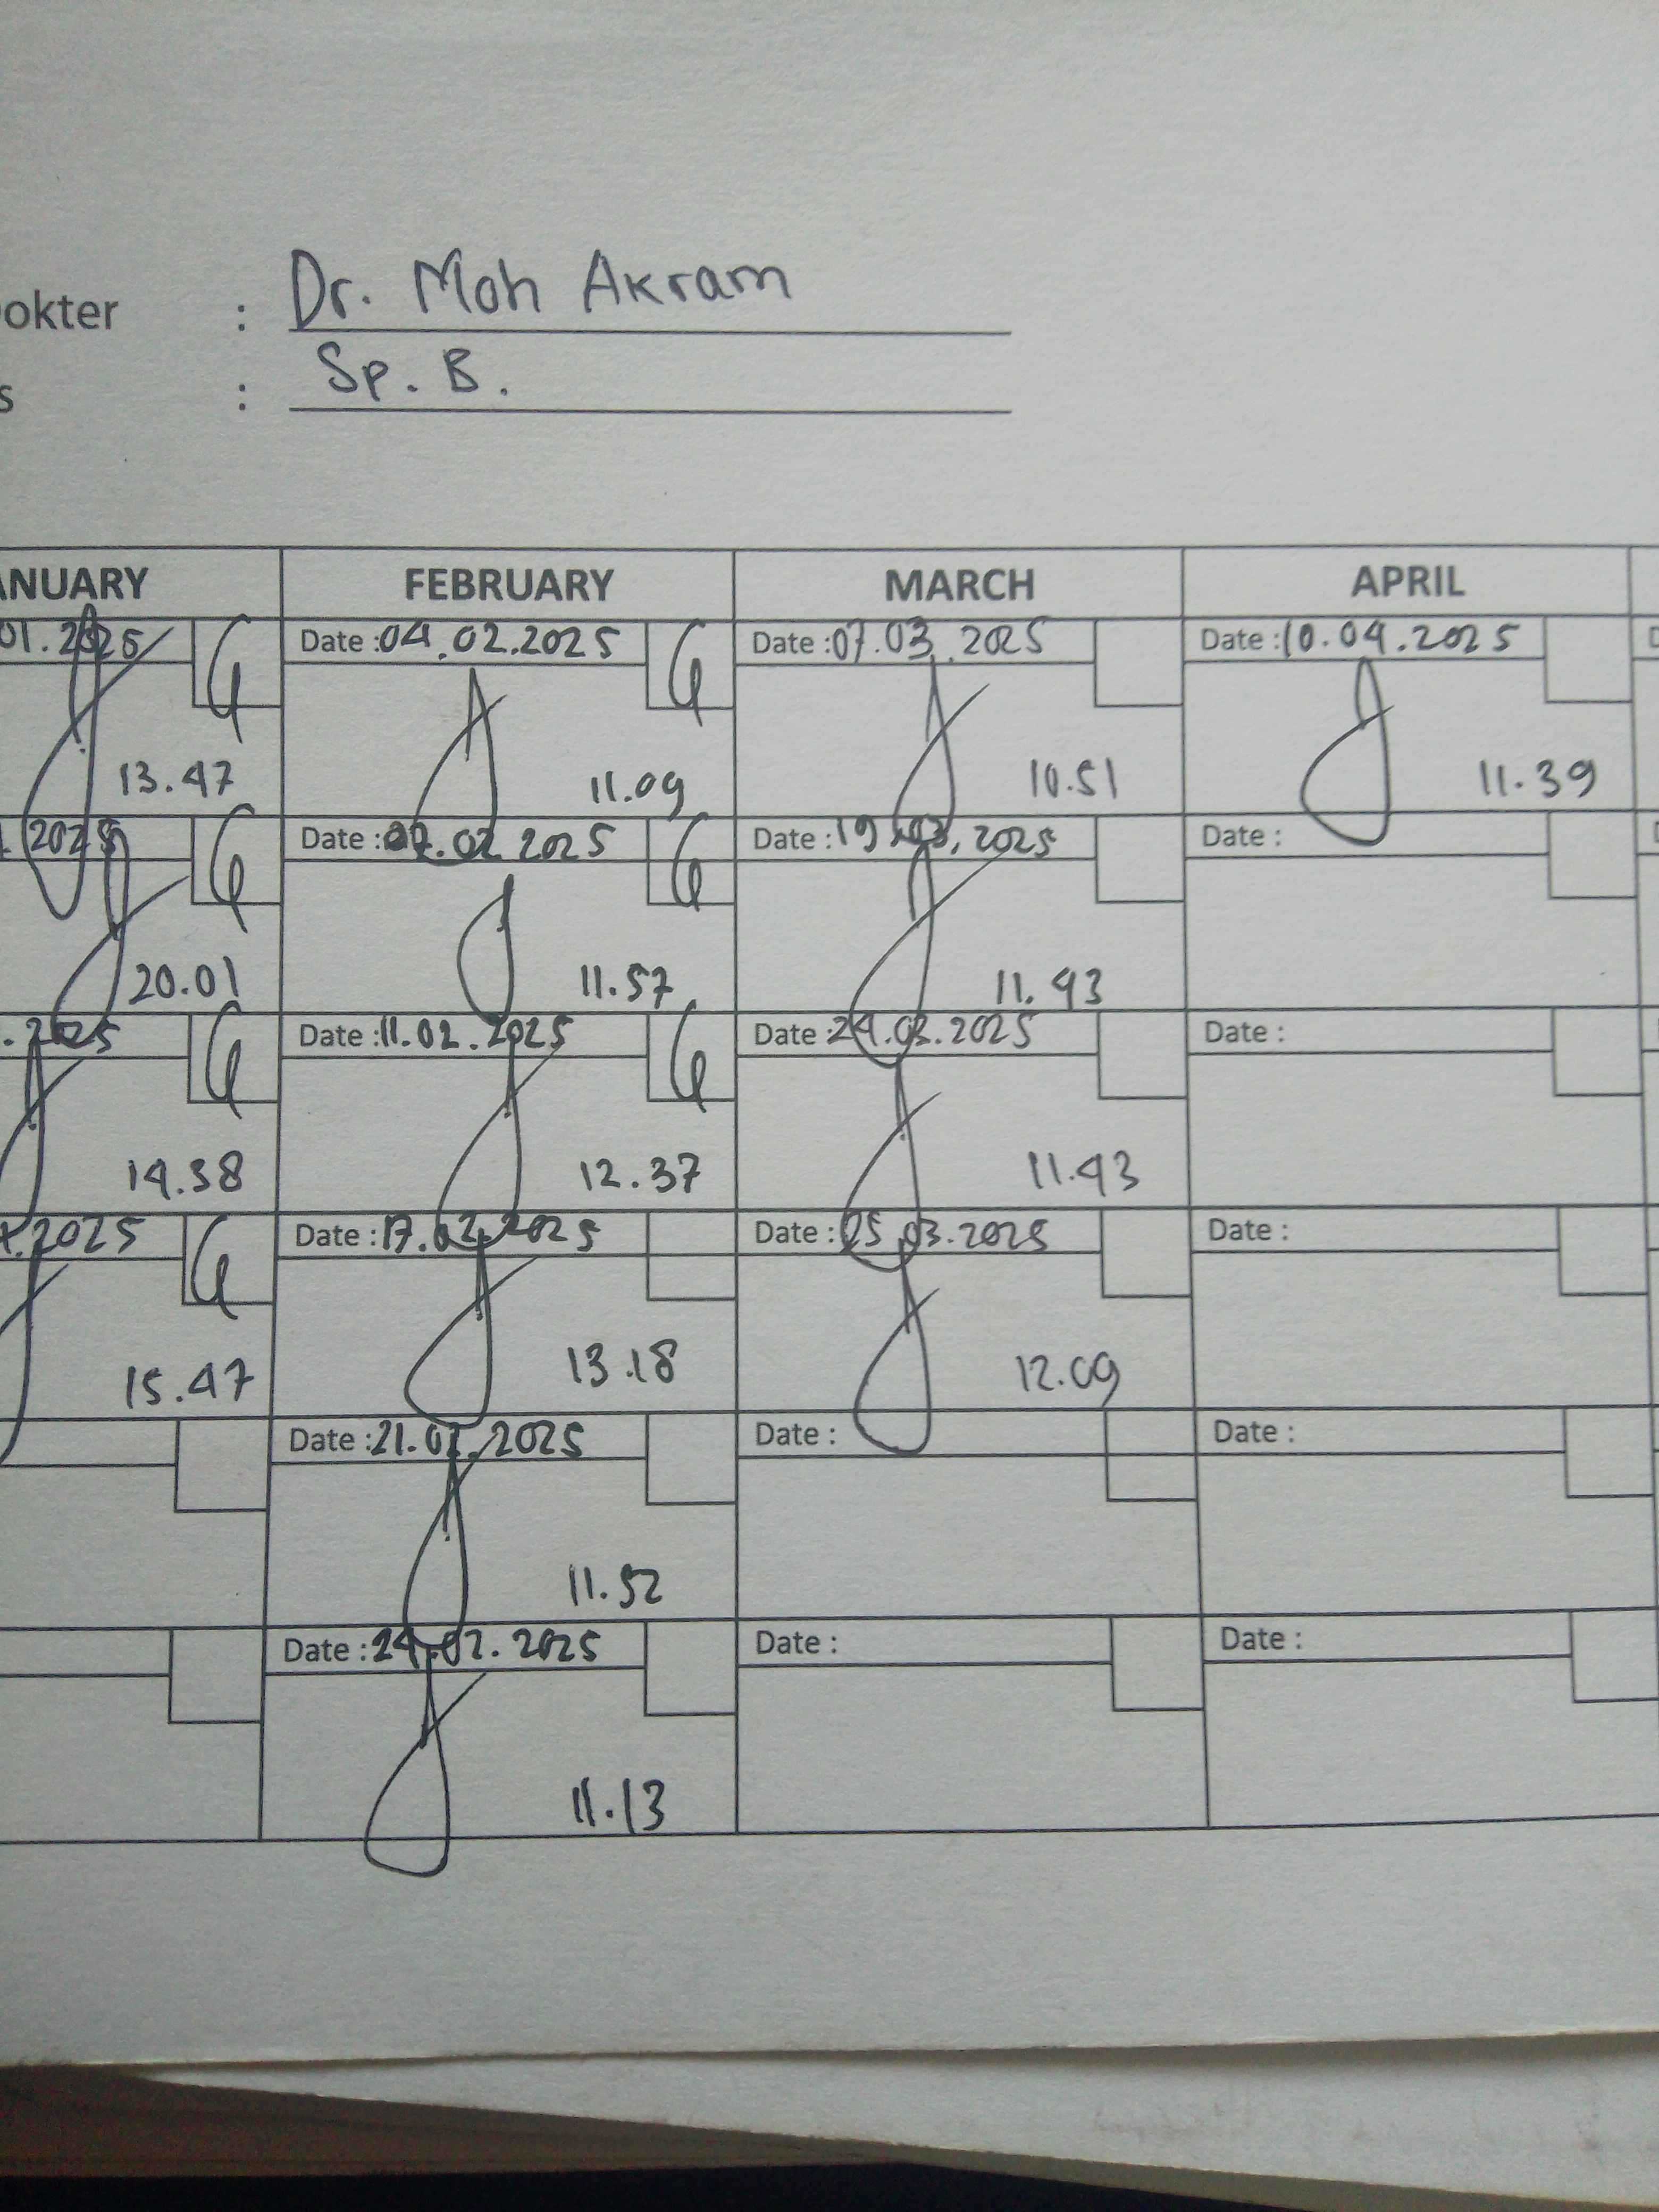 okter : Dr. Moh Akram
s : Sp. B.
ANUARY FEBRUARY MARCH APRIL
01.2025 Date :04.02.2025 Date :07.03.2025 Date :10.04.2025
13.47 11.09 10.51 11.39
2025 Date : .02 2025 Date :19.03.2025 Date :
20.01 11.57 11.43
.2025 Date :11.02.2025 Date :24.03.2025 Date :
14.38 12.37 11.43
.2025 Date :17.02.2025 Date :25.03.2025 Date :
15.47 13.18 12.09
Date :21.02.2025 Date : Date :
11.52
Date :24.02.2025 Date : Date :
11.13